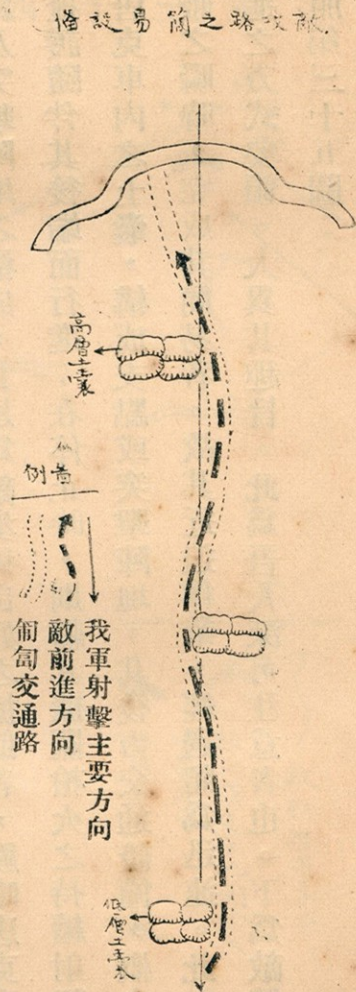 敵攻路之簡易設備
高層土囊
圖例
我軍射擊主要方向
敵前進方向
匍匐交通路
低層土囊